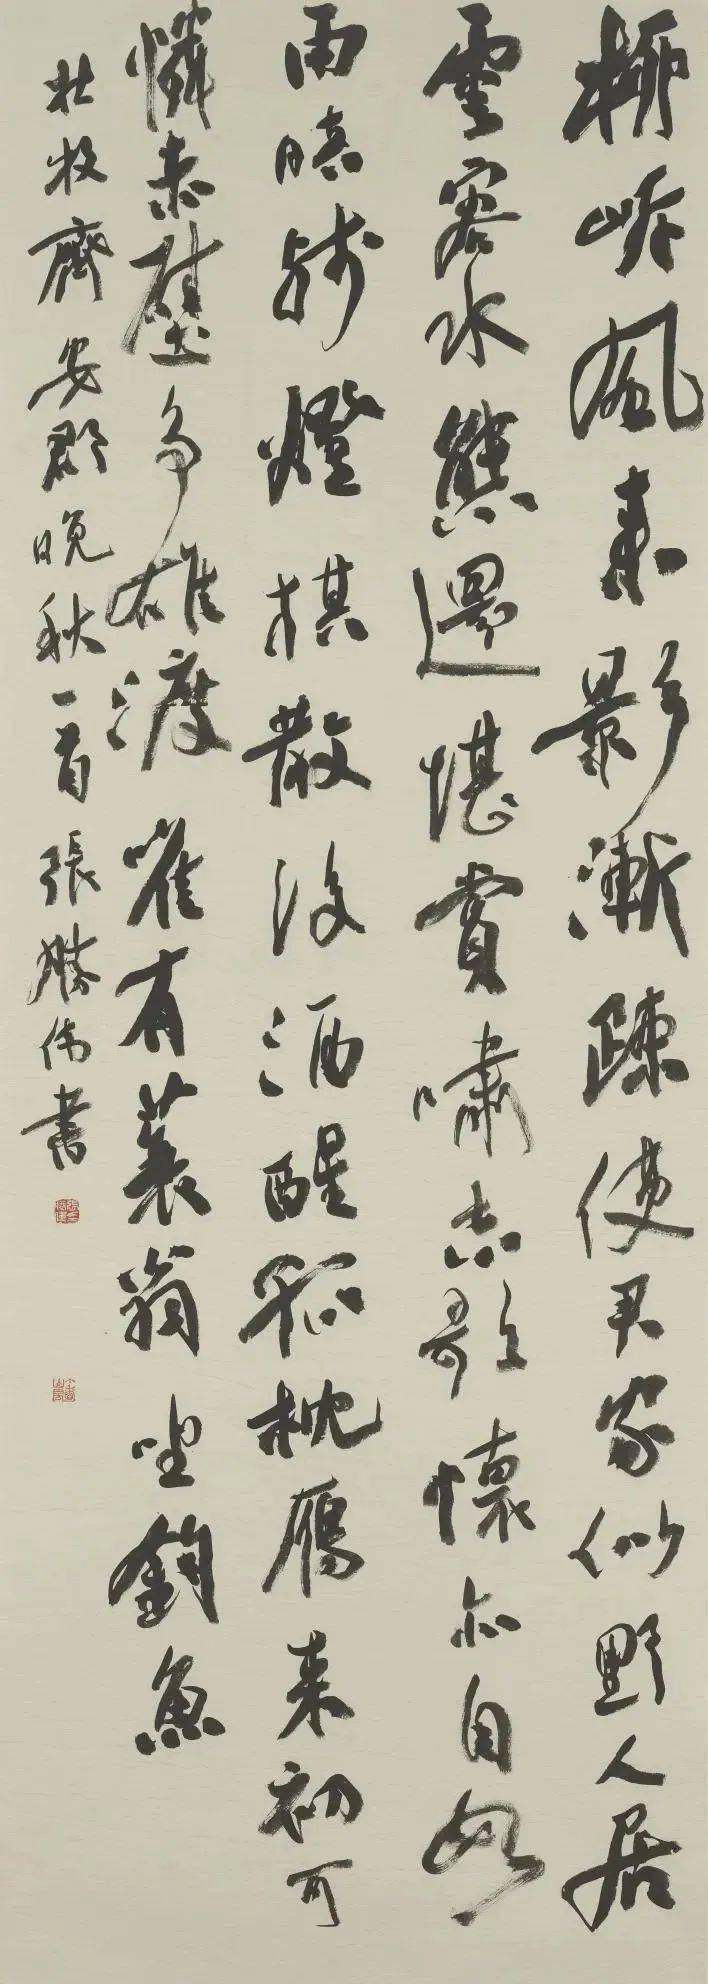 柳岸風來影漸疎使君家似野人居
雲容水態還堪賞嘯志歌懷亦自如
雨暗殘燈棋散後酒醒孤枕雁来初可
憐赤壁争雄渡唯有蓑翁坐釣魚
杜牧齊安郡晚秋一首張勝偉書